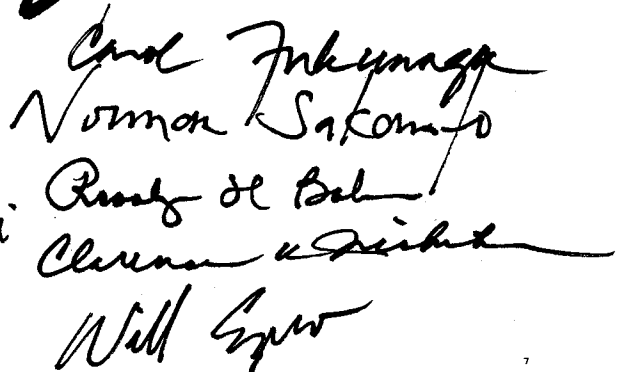 Carol Fukunaga
Norman Sakamoto
Rosalyn H Baker
Clarence K Nishihara
Will Espero
7